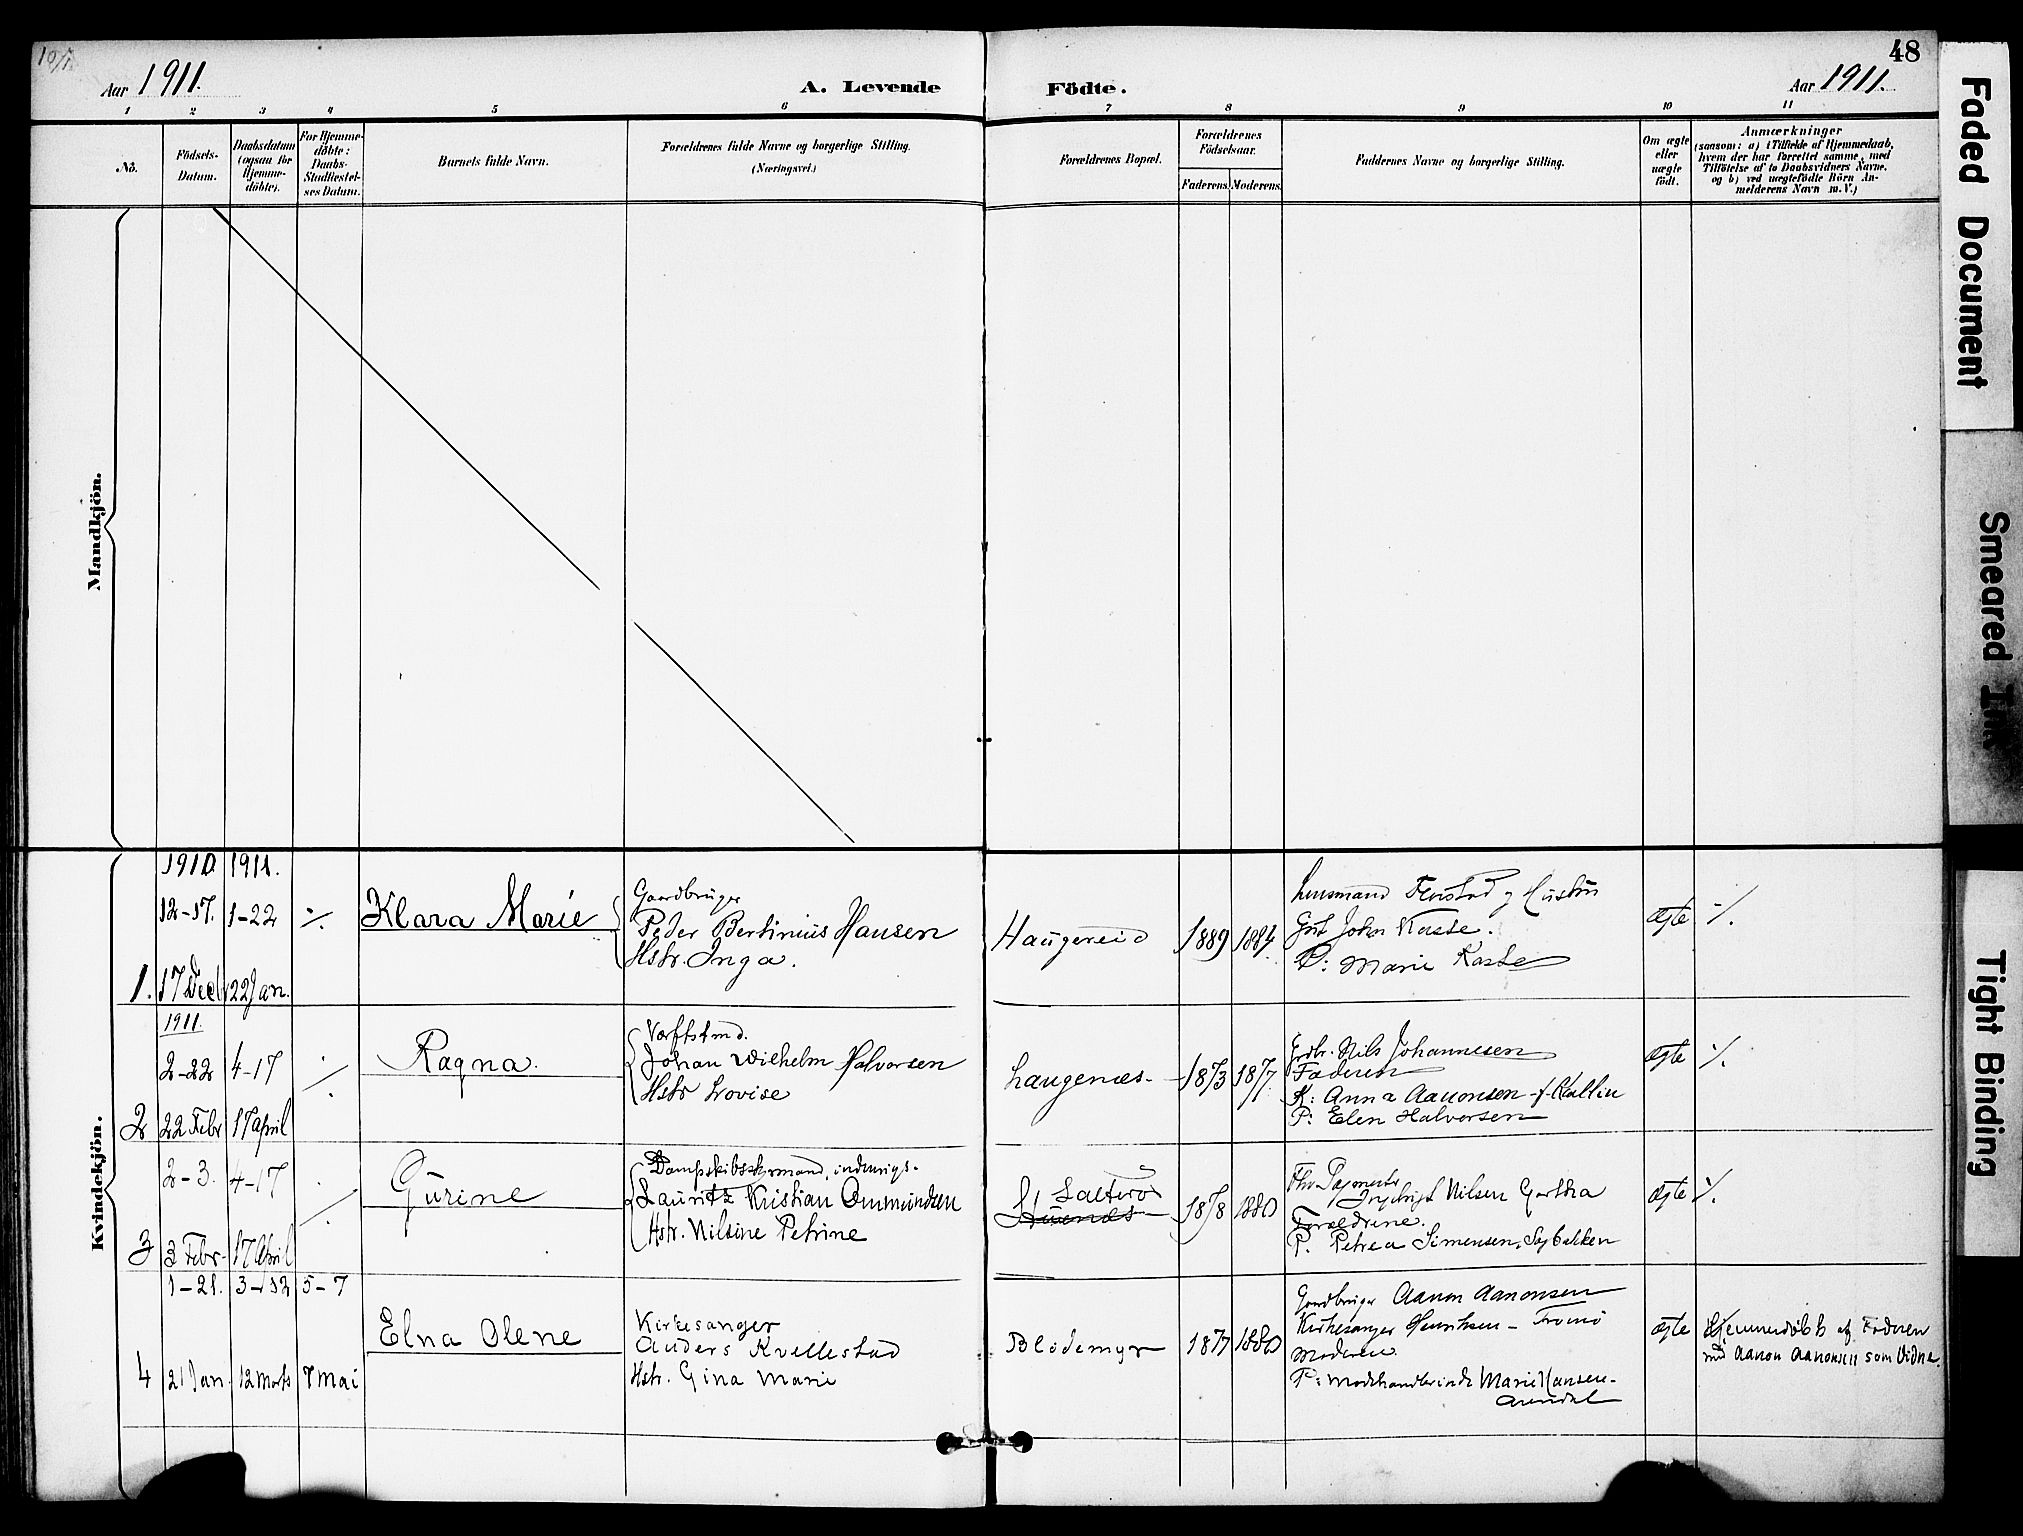 48
Aar 1911.
A. Levende Födte.
Aar 1911.
1 2 3 4 5 6 7 8 9 10 11
No.
Födsels-Datum.
Daabsdatum (ogsaa for Hjemme-döbte).
For Hjemme-döbte: Daabs-Stadfæstel-ses Datum.
Barnets fulde Navn.
Forældrenes fulde Navne og borgerlige Stilling.
(Næringsvei.)
Forældrenes Bopæl.
Forældrenes Födselsaar.
Faderens. Moderens.
Faddernes Navne og borgerlige Stilling.
Om ægte eller uægte födt.
Anmærkninger
(saasom: a) i Tilfælde af Hjemmedaab,
hvem der har forrettet samme, med
Tilföielse af to Daabsvidners Navne.
og b) ved uægtefödte Börn An-
melderens Navn m. V.)
Mandkjön.
Kvindekjön.
1910. 1911.
12-17. 1-22 ./.
1. 17 Decb 22 Jan.
Klara Marie
Gaardbruger
Peder Bertinius Hansen
Hstr. Inga.
Haugereid
1889 1884.
Lensmand Fenstad og Hustru
John Kaste.
P: Marie Kaste
ægte ./.
1911.
2-22 4-17 ./.
2 22 Febr 17 April
Ragna.
Værftstmd.
Johan Wilhelm Halvorsen
Hstr Lovise
Laugenæs.
1873 1877.
Grdbr. Nils Johannesen
Faderen
K: Anna Aanonsen
P: Elen Halvorsen
ægte ./.
2-3. 4-17 ./.
3 3 Febr. 17 April
Gurine
Lauritz Kristian Ommundsen
Hstr. Nilsine Petrine
Salterö
1878 1880
Nilsen Gartha
Forældrene.
P. Petrea Simensen, Sagbakken
ægte ./.
1-21. 3-12 5-7
4 21 Jan. 12 Marts 7 Mai
Elna Olene
Kirkesanger
Anders Kvellestad
Hstr. Gina Marie
Blödemyr
1877 1880
Gaardbruger Aanon Aanonsen
Kirkesanger Henriksen - Tromö
Moderen.
P: Modehandlerinde Marie Hansen-
Arendal
ægte
Hjemmedöbt af Faderen
med Aanon Aanonsen som Vidne.
Faded Document
Smeared Ink
Tight Binding